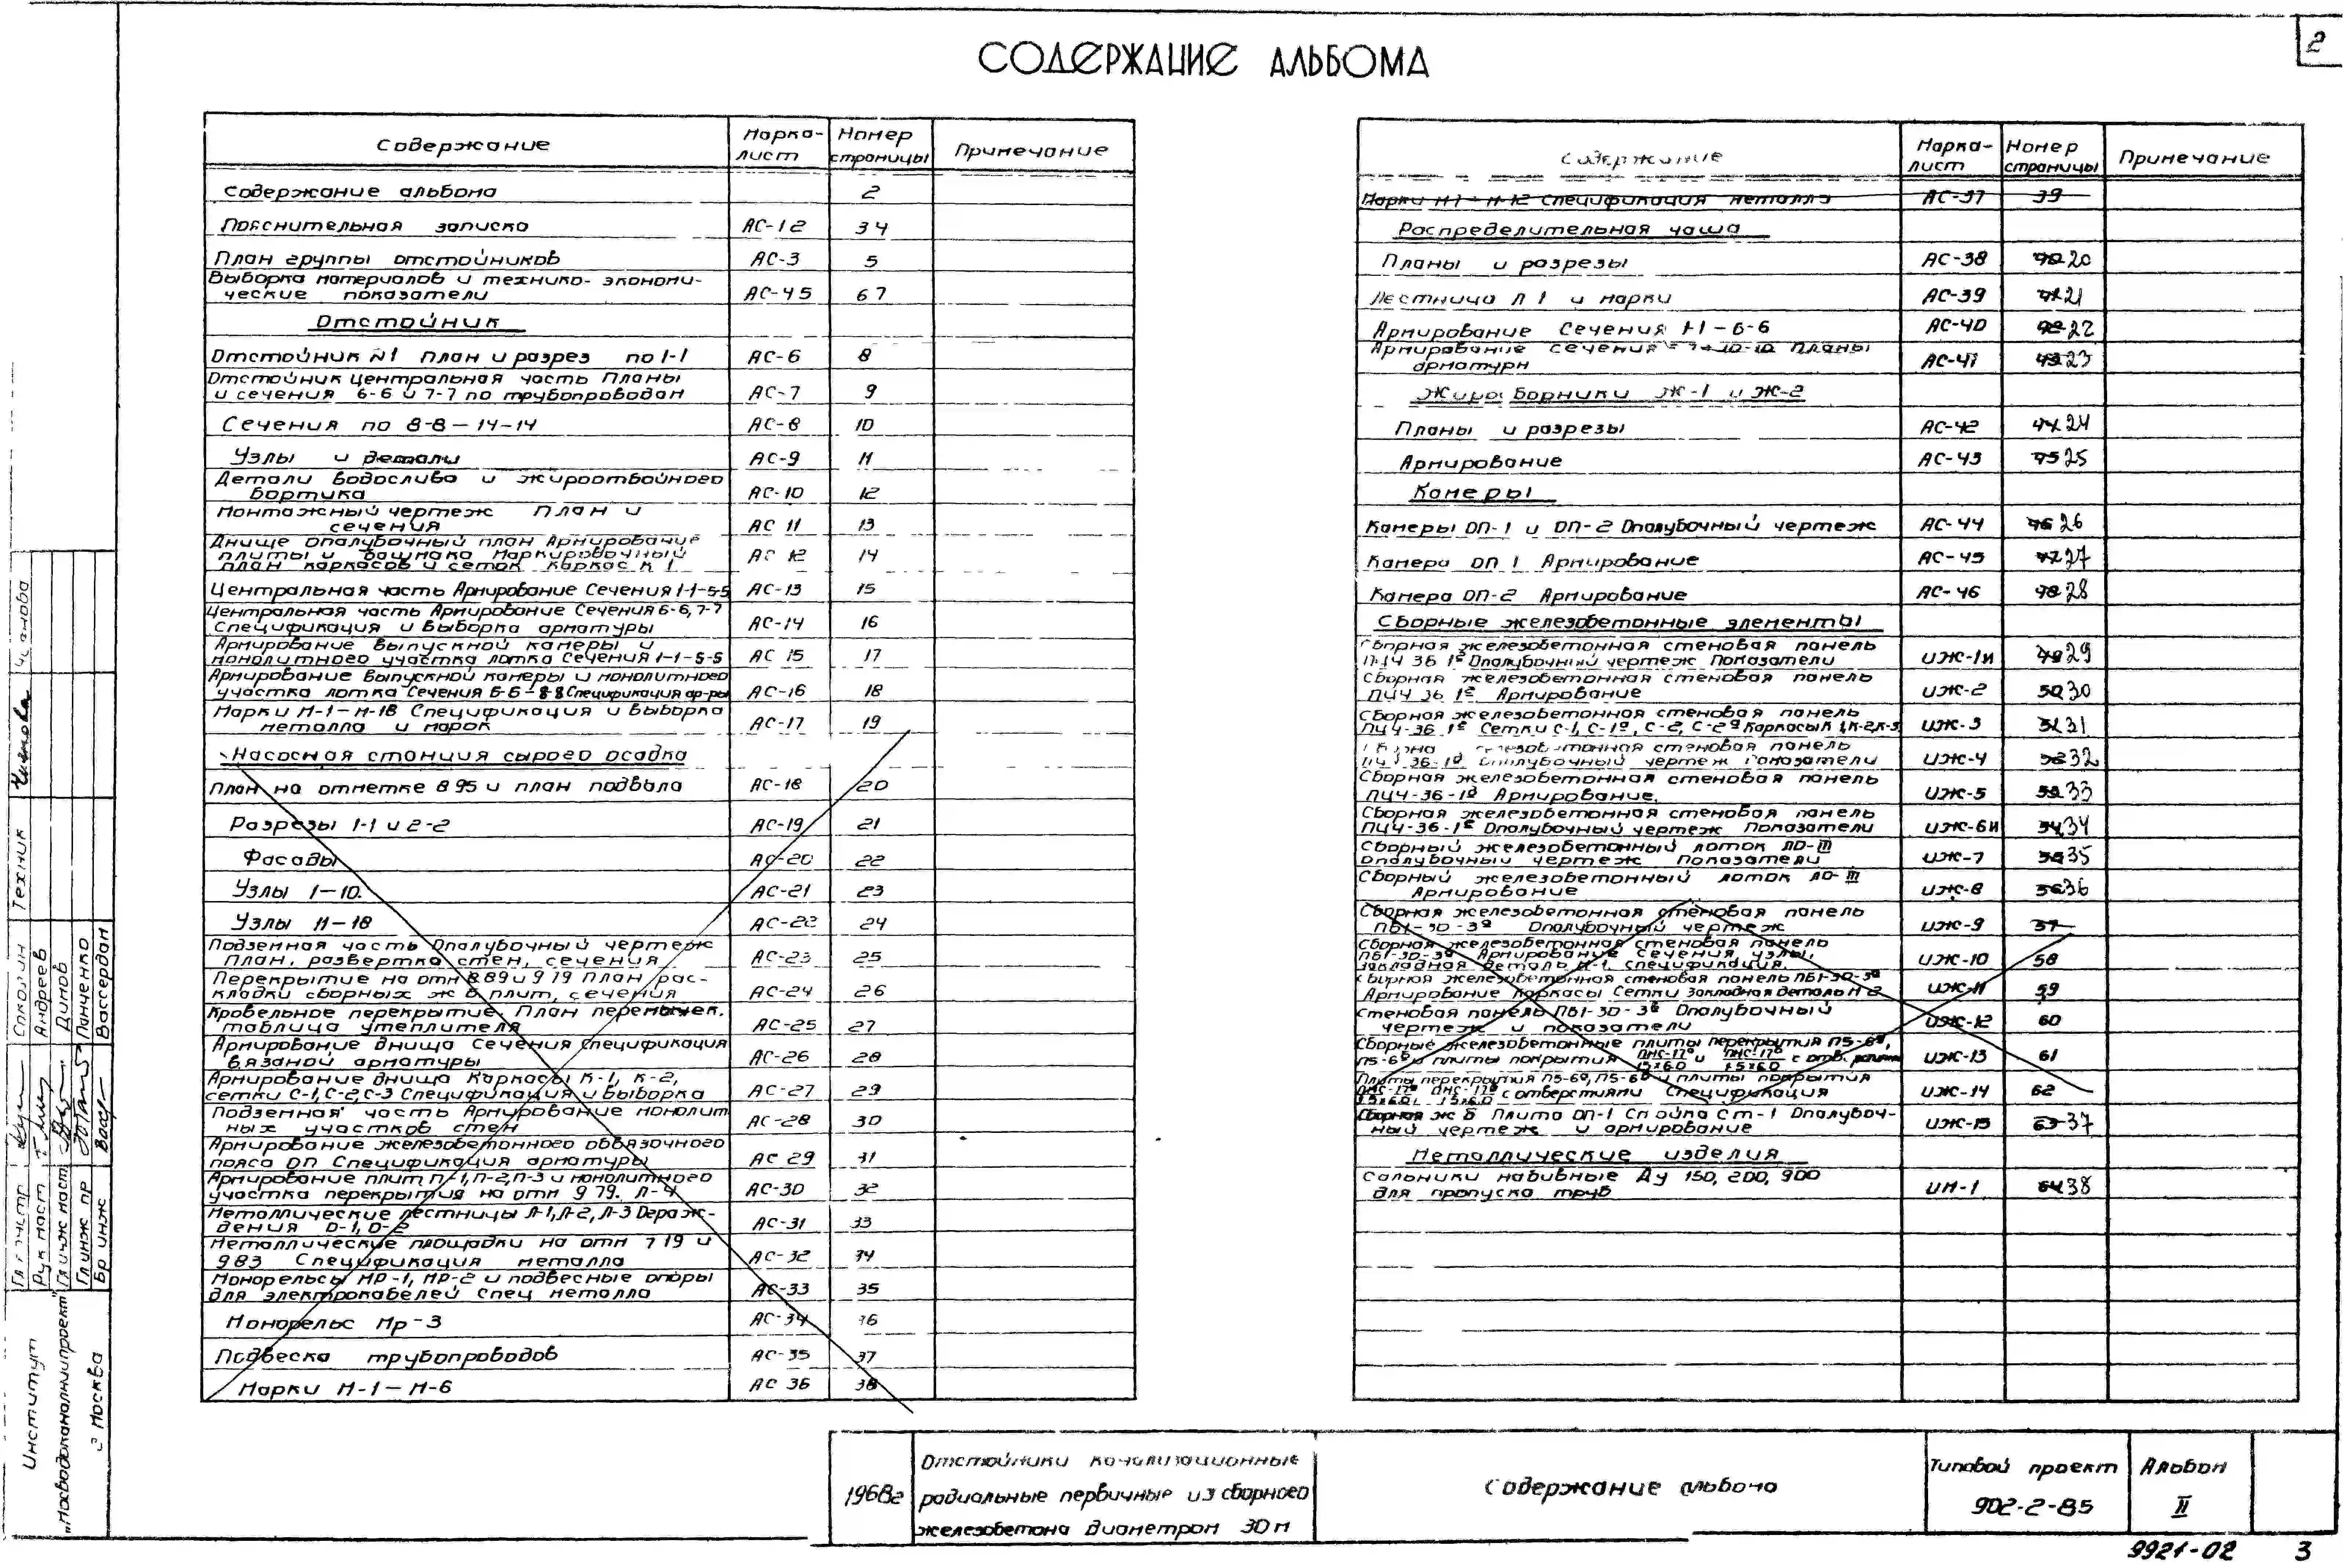 2
СОДЕРЖАНИЕ АЛЬБОМА
Содержание Марка-лист Номер страницы Примечание
Содержание альбома 2
Пояснительная записка АС-1 2 3 4
План группы отстойников АС-3 5
Выборка материалов и технико-экономи-
ческие показатели АС-4 5 6 7
Отстойник
Отстойник N1 План и разрез по 1-1 АС-6 8
Отстойник Центральная часть Планы
и сечения 6-6 и 7-7 по трубопроводам АС-7 9
Сечения по 8-8 — 14-14 АС-8 10
Узлы и детали АС-9 11
Детали водослива и жироотбойного
бортика АС-10 12
Монтажный чертеж План и
сечения АС 11 13
Днище Опалубочный план Армирование
плиты и башмака Маркировочный
план каркасов и сеток Каркас К 1 АС 12 14
Центральная часть Армирование Сечения 1-1-5-5 АС-13 15
Центральная часть Армирование Сечения 6-6, 7-7
Спецификация и выборка арматуры АС-14 16
Армирование выпускной камеры и
монолитного участка лотка Сечения 1-1-5-5 АС 15 17
Армирование выпускной камеры и монолитного
участка лотка Сечения 6-6-8-8 Спецификация ар-ры АС-16 18
Марки М-1-М-18 Спецификация и выборка
металла и марок АС-17 19
Насосная станция сырого осадка
План на отметке 8 95 и план подвала АС-18 20
Разрезы 1-1 и 2-2 АС-19 21
Фасады АС-20 22
Узлы 1-10. АС-21 23
Узлы 11-18 АС-22 24
Подземная часть Опалубочный чертеж
План, развертка стен, сечения АС-23 25
Перекрытие на отм 8.89 и 9 79 План рас-
кладки сборных ж б плит, сечения АС-24 26
Кровельное перекрытие План перемычек.
таблица утеплителя АС-25 27
Армирование днища Сечения Спецификация
вязаной арматуры АС-26 28
Армирование днища Каркасы К-1, К-2,
сетки С-1, С-2, С-3 Спецификация и выборка АС-27 29
Подземная часть Армирование монолит
ных участков стен АС-28 30
Армирование железобетонного обвязочного
пояса ОП Спецификация арматуры АС 29 31
Армирование плит П-1, П-2, П-3 и монолитного
участка перекрытия на отм 9 79. Л-4 АС-30 32
Металлические лестницы Л-1, Л-2, Л-3 Ограж-
дения О-1, О-2 АС-31 33
Металлические площадки на отм 7 19 и
9 83 Спецификация металла АС-32 34
Монорельсы Мр-1, Мр-2 и подвесные опоры
для электрокабелей Спец металла АС-33 35
Монорельс Мр-3 АС-34 36
Подвеска трубопроводов АС-35 37
Марки М-1 — М-6 АС 36 38
Содержание Марка-лист Номер страницы Примечание
Марки М7-М-12 Спецификация металла АС-37 39
Распределительная чаша
Планы и разрезы АС-38 40 20
Лестница Л 1 и марки АС-39 41 21
Армирование Сечения 1-1 — 6-6 АС-40 42 22
Армирование сечения 7-7-10-10 Планы
арматуры АС-41 43 23
Жиросборники Ж-1 и Ж-2
Планы и разрезы АС-42 44 24
Армирование АС-43 45 25
Камеры
Камеры ОП-1 и ОП-2 Опалубочный чертеж АС-44 46 26
Камера ОП 1 Армирование АС-45 47 27
Камера ОП-2 Армирование АС-46 48 28
Сборные железобетонные элементы
Сборная железобетонная стеновая панель
ПЦ4 36 1с Опалубочный чертеж Показатели ИЖ-1и 49 29
Сборная железобетонная стеновая панель
ПЦ4 36 1с Армирование ИЖ-2 50 30
Сборная железобетонная стеновая панель
ПЦ4-36 1с Сетки С-1, С-1а, С-2, С-2а Каркасы К 1, К-2, К-3 ИЖ-3 51 31
Сборная железобетонная стеновая панель
ПЦ4-36-1д Опалубочный чертеж Показатели ИЖ-4 52 32
Сборная железобетонная стеновая панель
ПЦ4-36-1д Армирование. ИЖ-5 53 33
Сборная железобетонная стеновая панель
ПЦ4-36-1е Опалубочный чертеж Показатели ИЖ-6и 54 34
Сборный железобетонный лоток ЛО-III
Опалубочный чертеж Показатели ИЖ-7 55 35
Сборный железобетонный лоток ЛО-III
Армирование ИЖ-8 56 36
Сборная железобетонная стеновая панель
ПБ1-30-3а Опалубочный чертеж ИЖ-9 57
Сборная железобетонная стеновая панель
ПБ1-30-3а Армирование Сечения, узлы,
закладная деталь М-1, спецификация. ИЖ-10 58
Сборная железобетонная стеновая панель ПБ1-30-3а
Армирование Каркасы Сетки Закладная деталь М 2 ИЖ-11 59
Стеновая панель ПБ1-30-3б Опалубочный
чертеж и показатели ИЖ-12 60
Сборные железобетонные плиты перекрытия П5-6а,
П5-6б и плиты покрытия ПНС-17а/1 5х6.0 и ПНС-17б/1 5х6.0 с отв. ИЖ-13 61
Плиты перекрытия П5-6а, П5-6б и плиты покрытия
ПНС-17а/1 5х6.0, ПНС-17б/1 5х6.0 с отверстиями Спецификация ИЖ-14 62
Сборная ж б Плита ОП-1 Стойка Ст-1 Опалубоч-
ный чертеж и армирование ИЖ-15 63 37
Металлические изделия
Сальники набивные Ду 150, 200, 900
для пропуска труб ИМ-1 64 38
Техник
Соколин
Андреев
Динов
Панченко
Вассердан
Рук маст
Гл инж маст
Гл инж пр
Бр инж
Институт
„Мосводоканалниипроект"
г Москва
1968г
Отстойники канализационные
радиальные первичные из сборного
железобетона диаметром 30 м
Содержание альбома
Типовой проект
902-2-85
Альбом
II
9921-02 3